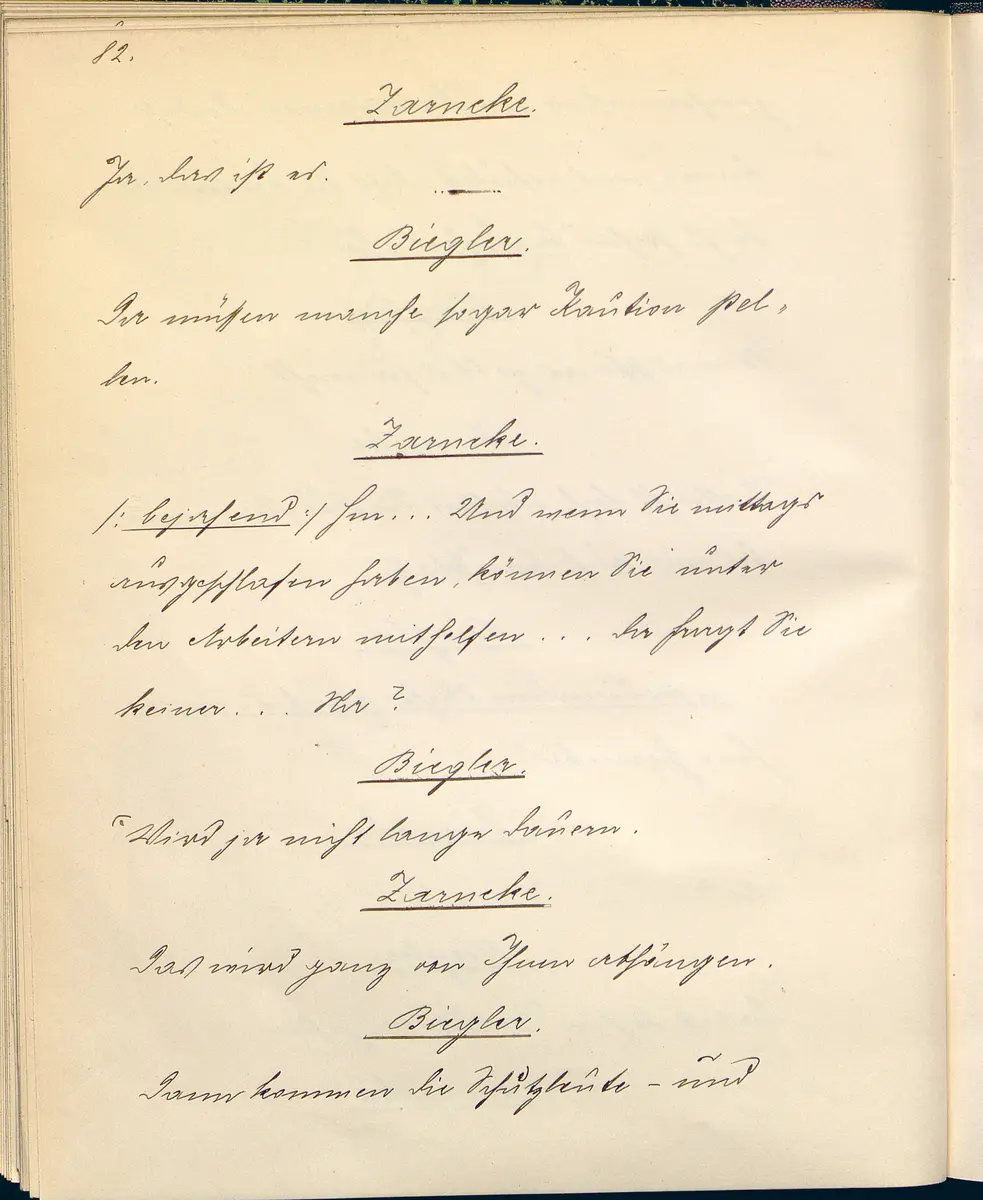 82.
Zarncke.
Ja, das ist es.
Biegler.
Da müssen manche sogar Kaution stel-
len.
Zarncke.
/: bejahend :/ Hm... Und wenn Sie mittags
ausgeschlafen haben, können Sie unter
den Arbeitern mithelfen... da fragt Sie
keiner... Na?
Biegler.
Wird ja nicht lange dauern.
Zarncke.
Das wird ganz von Ihnen abhängen.
Biegler.
Dann kommen die Schutzleute - und